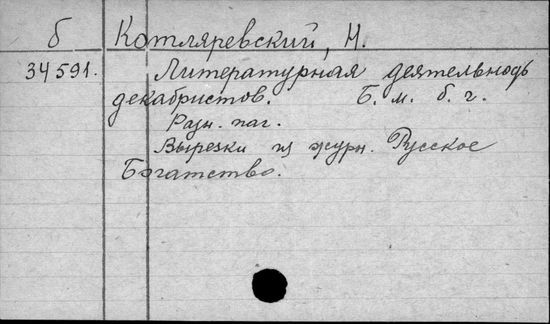 б Котляревский, Н.
34591. Литературная деятельнодь
декабристов. Б. м. б. г.
Разн. паг.
Вырезки из журн. Русское
Богатство.